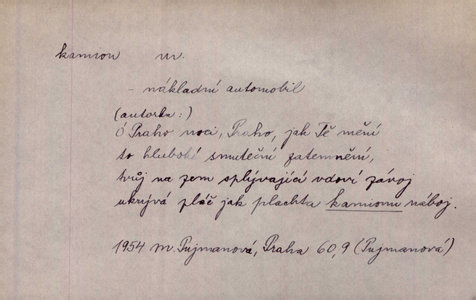 kamion m.
- nákladní automobil
(autorka:)
Ó Praho noci, Praho, jak Tě mění
to hluboké smuteční zatemnění,
tvůj na zem splývající vdoví závoj
ukrývá pláč jak plachta kamionu náboj.
1954 M. Pujmanová, Praha 60,9 (Pujmanová)